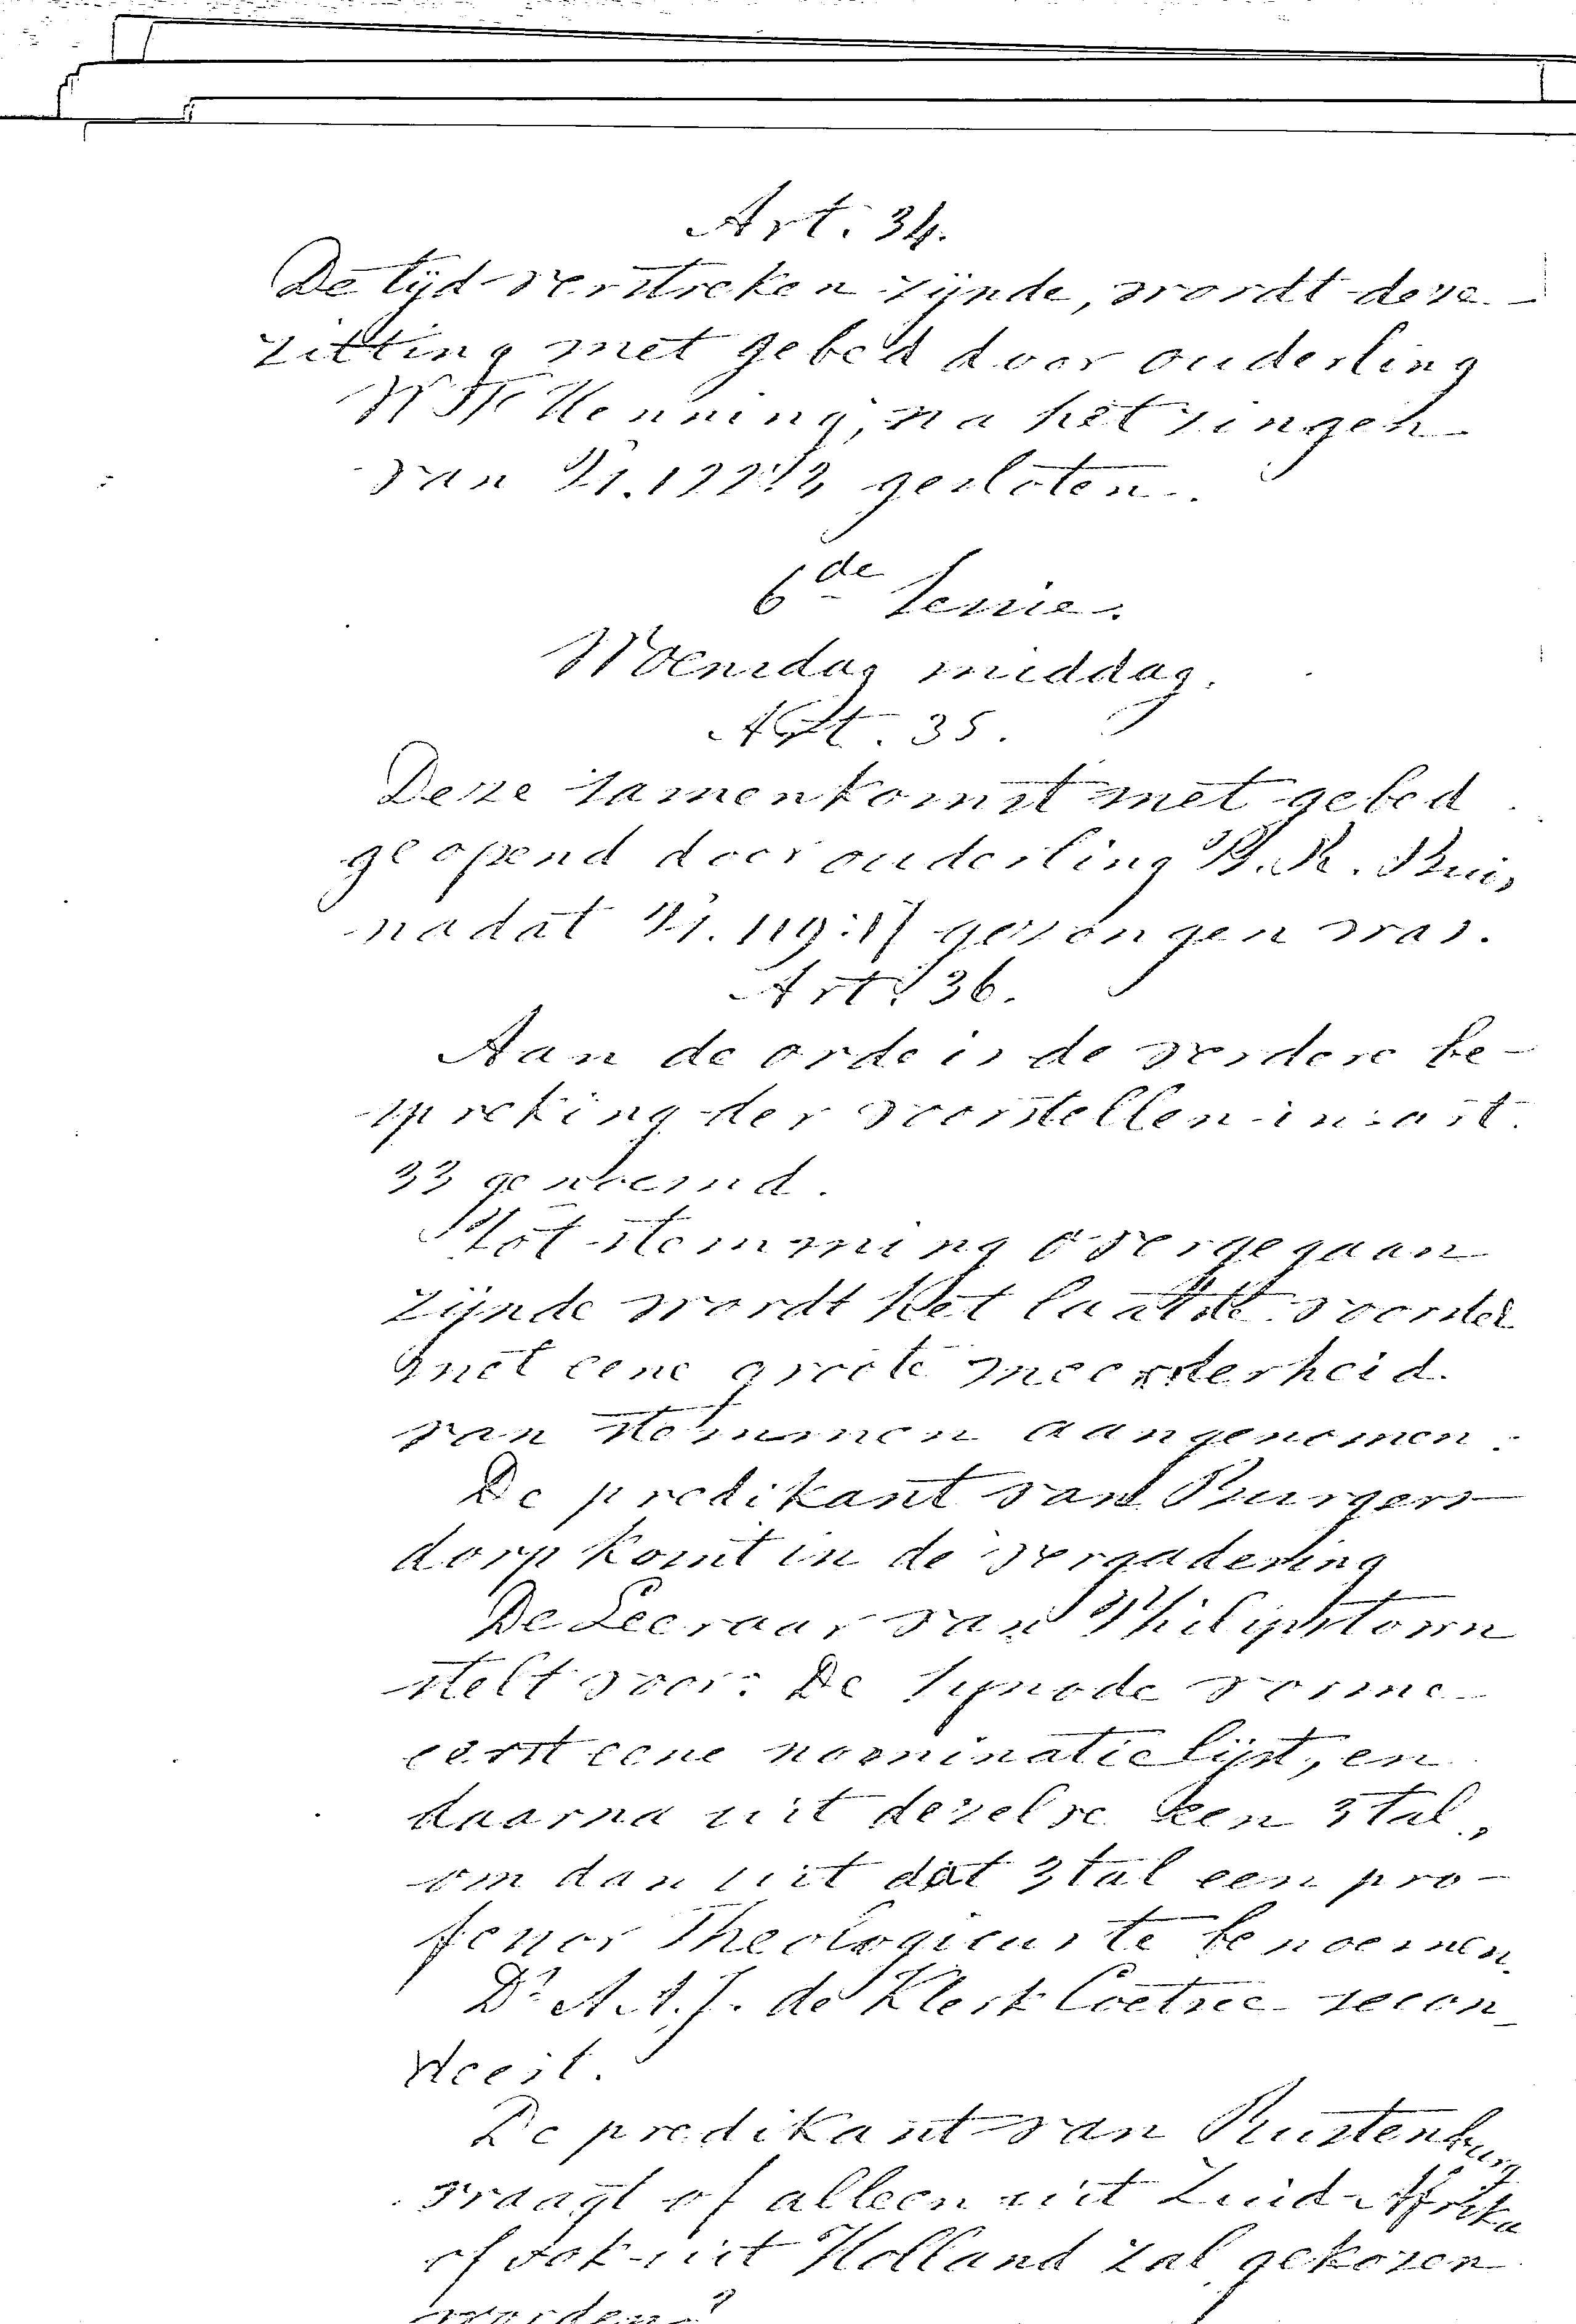 Art. 34.
De tijd verstreken zijnde, wordt deze
zitting met gebed door ouderling
Henning, na het zingen
van Ps. gesloten.
6de Sessie.
Woensdag middag.
Art. 35.
Deze samenkomst met gebed
geopend door ouderling P. R. Buis
nadat Ps. 119: gezongen was.
Art. 36.
Aan de orde is de verdere be-
spreking der voorstellen in art.
33 genoemd.
Tot stemming overgegaan
zijnde wordt het laatste voorstel
met eene groote meerderheid
van stemmen aangenomen.
De predikant van Burgers
dorp komt in de vergadering
De Leeraar van Philipstown
stelt voor: De Synode vorme
eerst eene nominatielijst, en
daarna uit dezelve een 3tal,
om dan uit dat 3tal een pro-
fessor Theologicus te benoemen.
Ds A. A. J. de Klerk Coetzee secon-
deert.
De predikant van Rustenburg
vraagt of alleen uit Zuid-Afrika
of ook uit Holland zal gekozen
worden?